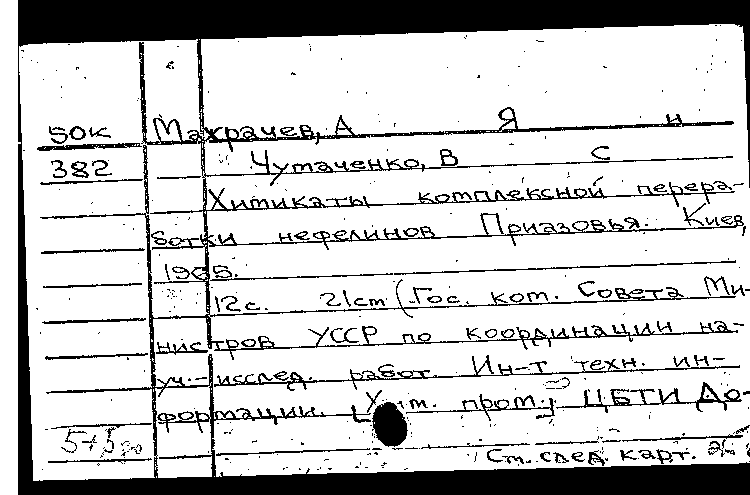 50К Махрачев, А Я и
382 Чутаченко, В С
Химикаты комплексной перера-
ботки нефелинов Приазовья. Киев,
1965.
12с. 21cm (Гос. ком. Совета Ми-
нистров УССР по координации на-
уч.-исслед. работ. Ин-т техн. ин-
формации. пром. ЦБТИ До-
См. след. карт.